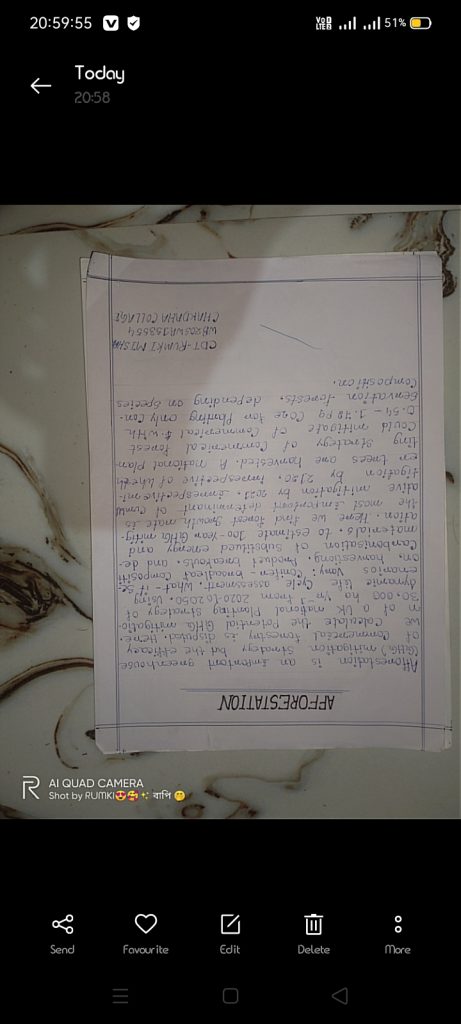 20:59:55
Vo LTE 2
51%
Today
20:58
AFFORESTATION
Afforestation is an important greenhouse
(GHG) mitigation strategy but the efficacy
of Commercial forestry is disputed. Here.
we calculate the Potential GHG mitigatio-
n of a UK national Planting strategy of
30.000 ha Yr-1 from 2020 to 2050. Using
dynamic life Cycle assessment. What-if
enarios Vary: Conifer-broadleaf Compositi
on harvesting. Product breakouts. and de-
Carbonisation of substituted energy and
materials. to estimate 100-Year GHG mitig-
ation. Here we find forest growth rate is
the most important determinant of cumul
ative mitigation by
tigation by 2120. irrespective of wheth
er trees are harvested. A national Plan-
ting Strategy of Commercial forest
Could mitigate of Commercial with
Pg CO2e for Planting only Con-
servation forests. depending on Species
Composition.
CDT-RUMKI MISHRA
CHAKDAHA COLLAGE
R
AI QUAD CAMERA
Shot by RUMKI😍🥰✨ বাপি 🤭
Send
Favourite
Edit
Delete
More